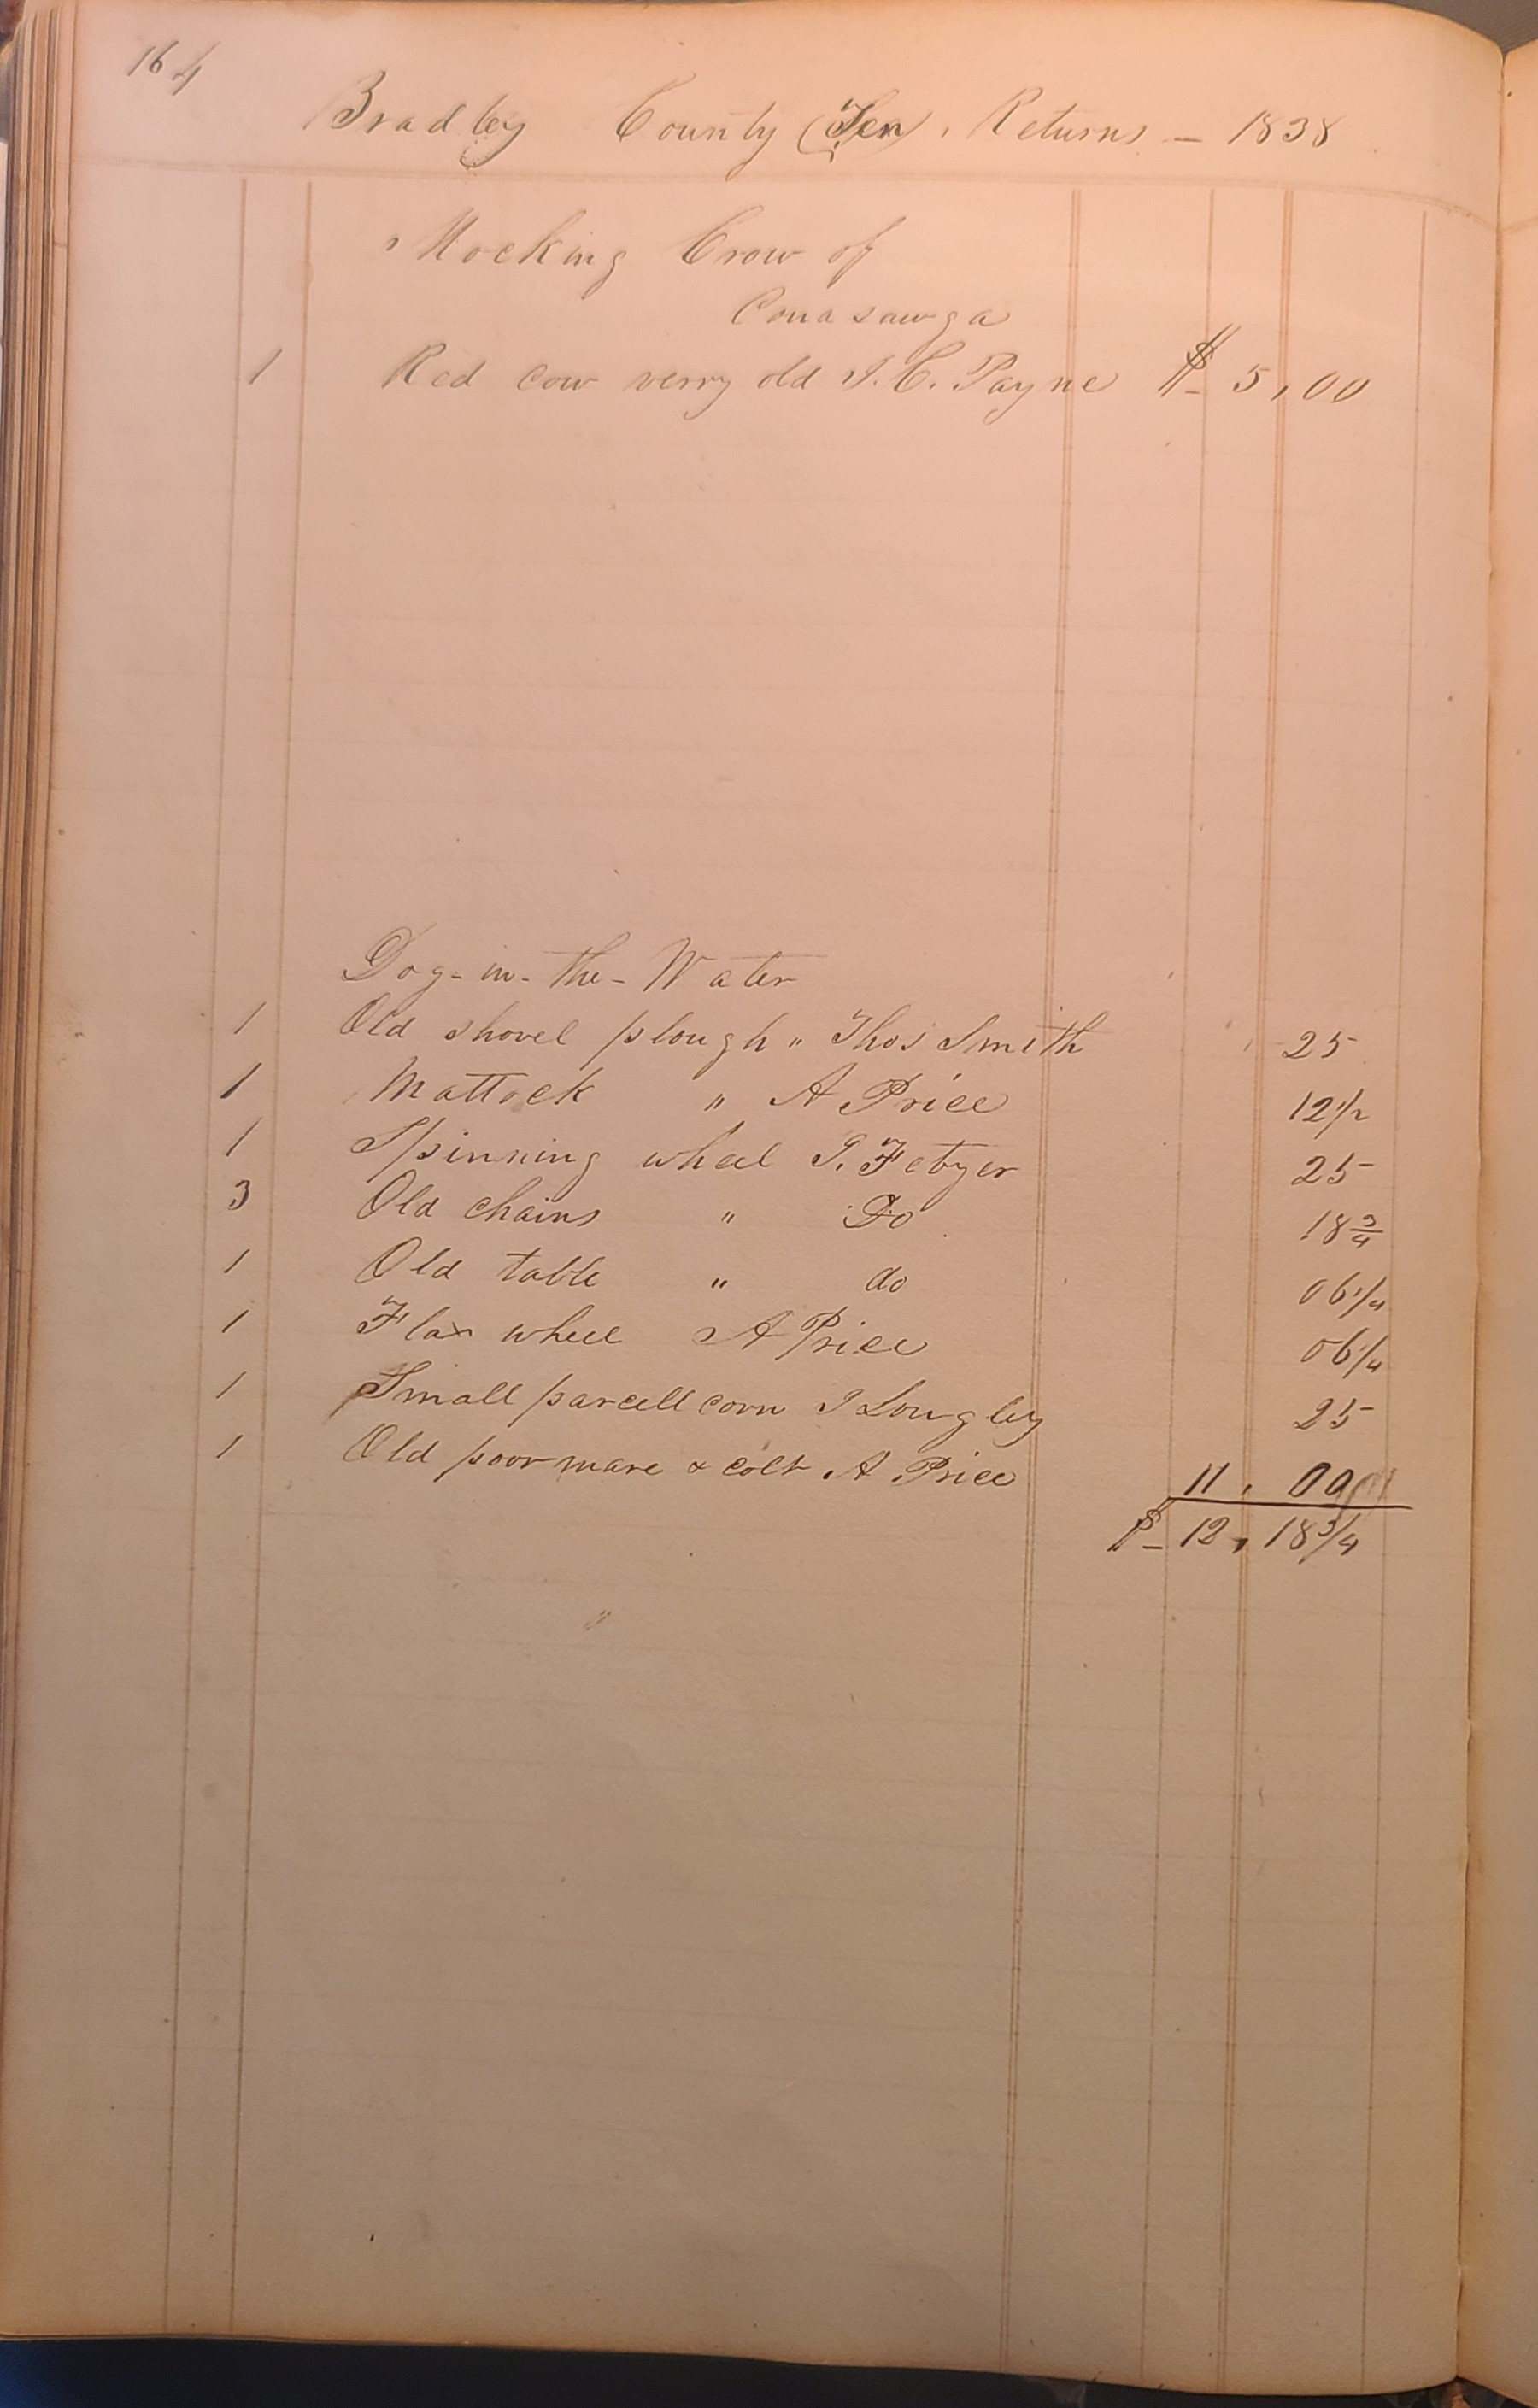 164
Bradley County (Ten). Returns — 1838
Mocking Crow of
Conasawga
1 Red cow verry old I. C. Payne $ - 5,00
Dog-in-the-Water
1 Old shovel plough " Thos Smith 25
1 Mattock " A Price 12 1/2
1 Spinning wheel I. Fetzer 25
3 Old chains " Do 18 3/4
1 Old table " do 06 1/4
1 Flax wheel A Price 06 1/4
1 Small parcell corn I Longley 25
1 Old poor mare & colt A Price 11, 00
$ - 12, 18 3/4
"